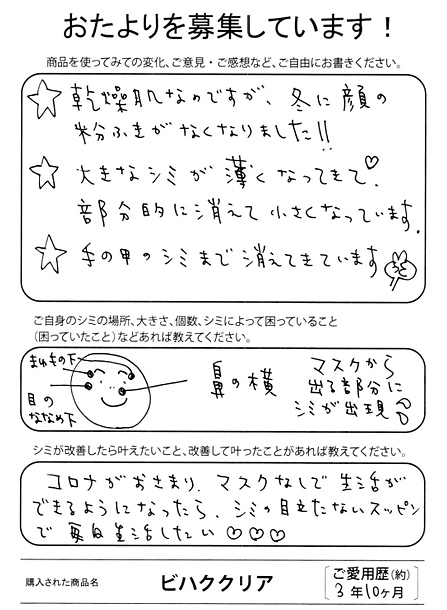 おたよりを募集しています！
商品を使ってみての変化、ご意見・ご感想など、ご自由にお書きください。
☆ 乾燥肌なのですが、冬に顔の
粉ふきがなくなりました!!
☆ 大きなシミが薄くなってきて♡
部分的に消えて小さくなっています。
☆ 手の甲のシミまで消えてきています
ご自身のシミの場所、大きさ、個数、シミによって困っていること
（困っていたこと）などあれば教えてください。
まゆもの下
目の
ななめ下
鼻の横
マスクから
出る部分に
シミが出現
シミが改善したら叶えたいこと、改善して叶ったことがあれば教えてください。
コロナがおさまり、マスクなしで生活が
できるようになったら、シミの目立たないスッピン
で毎日生活したい♡♡♡
購入された商品名
ビハククリア
ご愛用歴（約）
3年10ヶ月